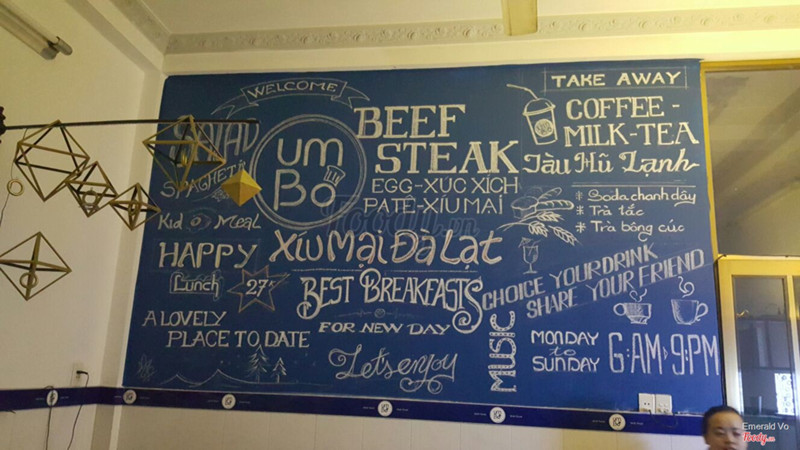 WELCOME
SPAGHETTI
Kid Meal
HAPPY
Lunch 27K
A LOVELY
PLACE TO DATE
um
Bo
BEEF
STEAK
EGG-XÚC XÍCH
PATÊ-XÍU MẠI
Xíu Mại Đà Lạt
BEST BREAKFASTS
FOR NEW DAY
Let's enjoy
TAKE AWAY
COFFEE -
MILK-TEA
Tàu Hũ Lạnh
* Soda chanh dây
* Trà tắc
* Trà bông cúc
CHOICE YOUR DRINK
SHARE YOUR FRIEND
MUSIC
MONDAY
to
SUNDAY
6:AM-9:PM
Foody.vn
Emerald Vo
foody.vn